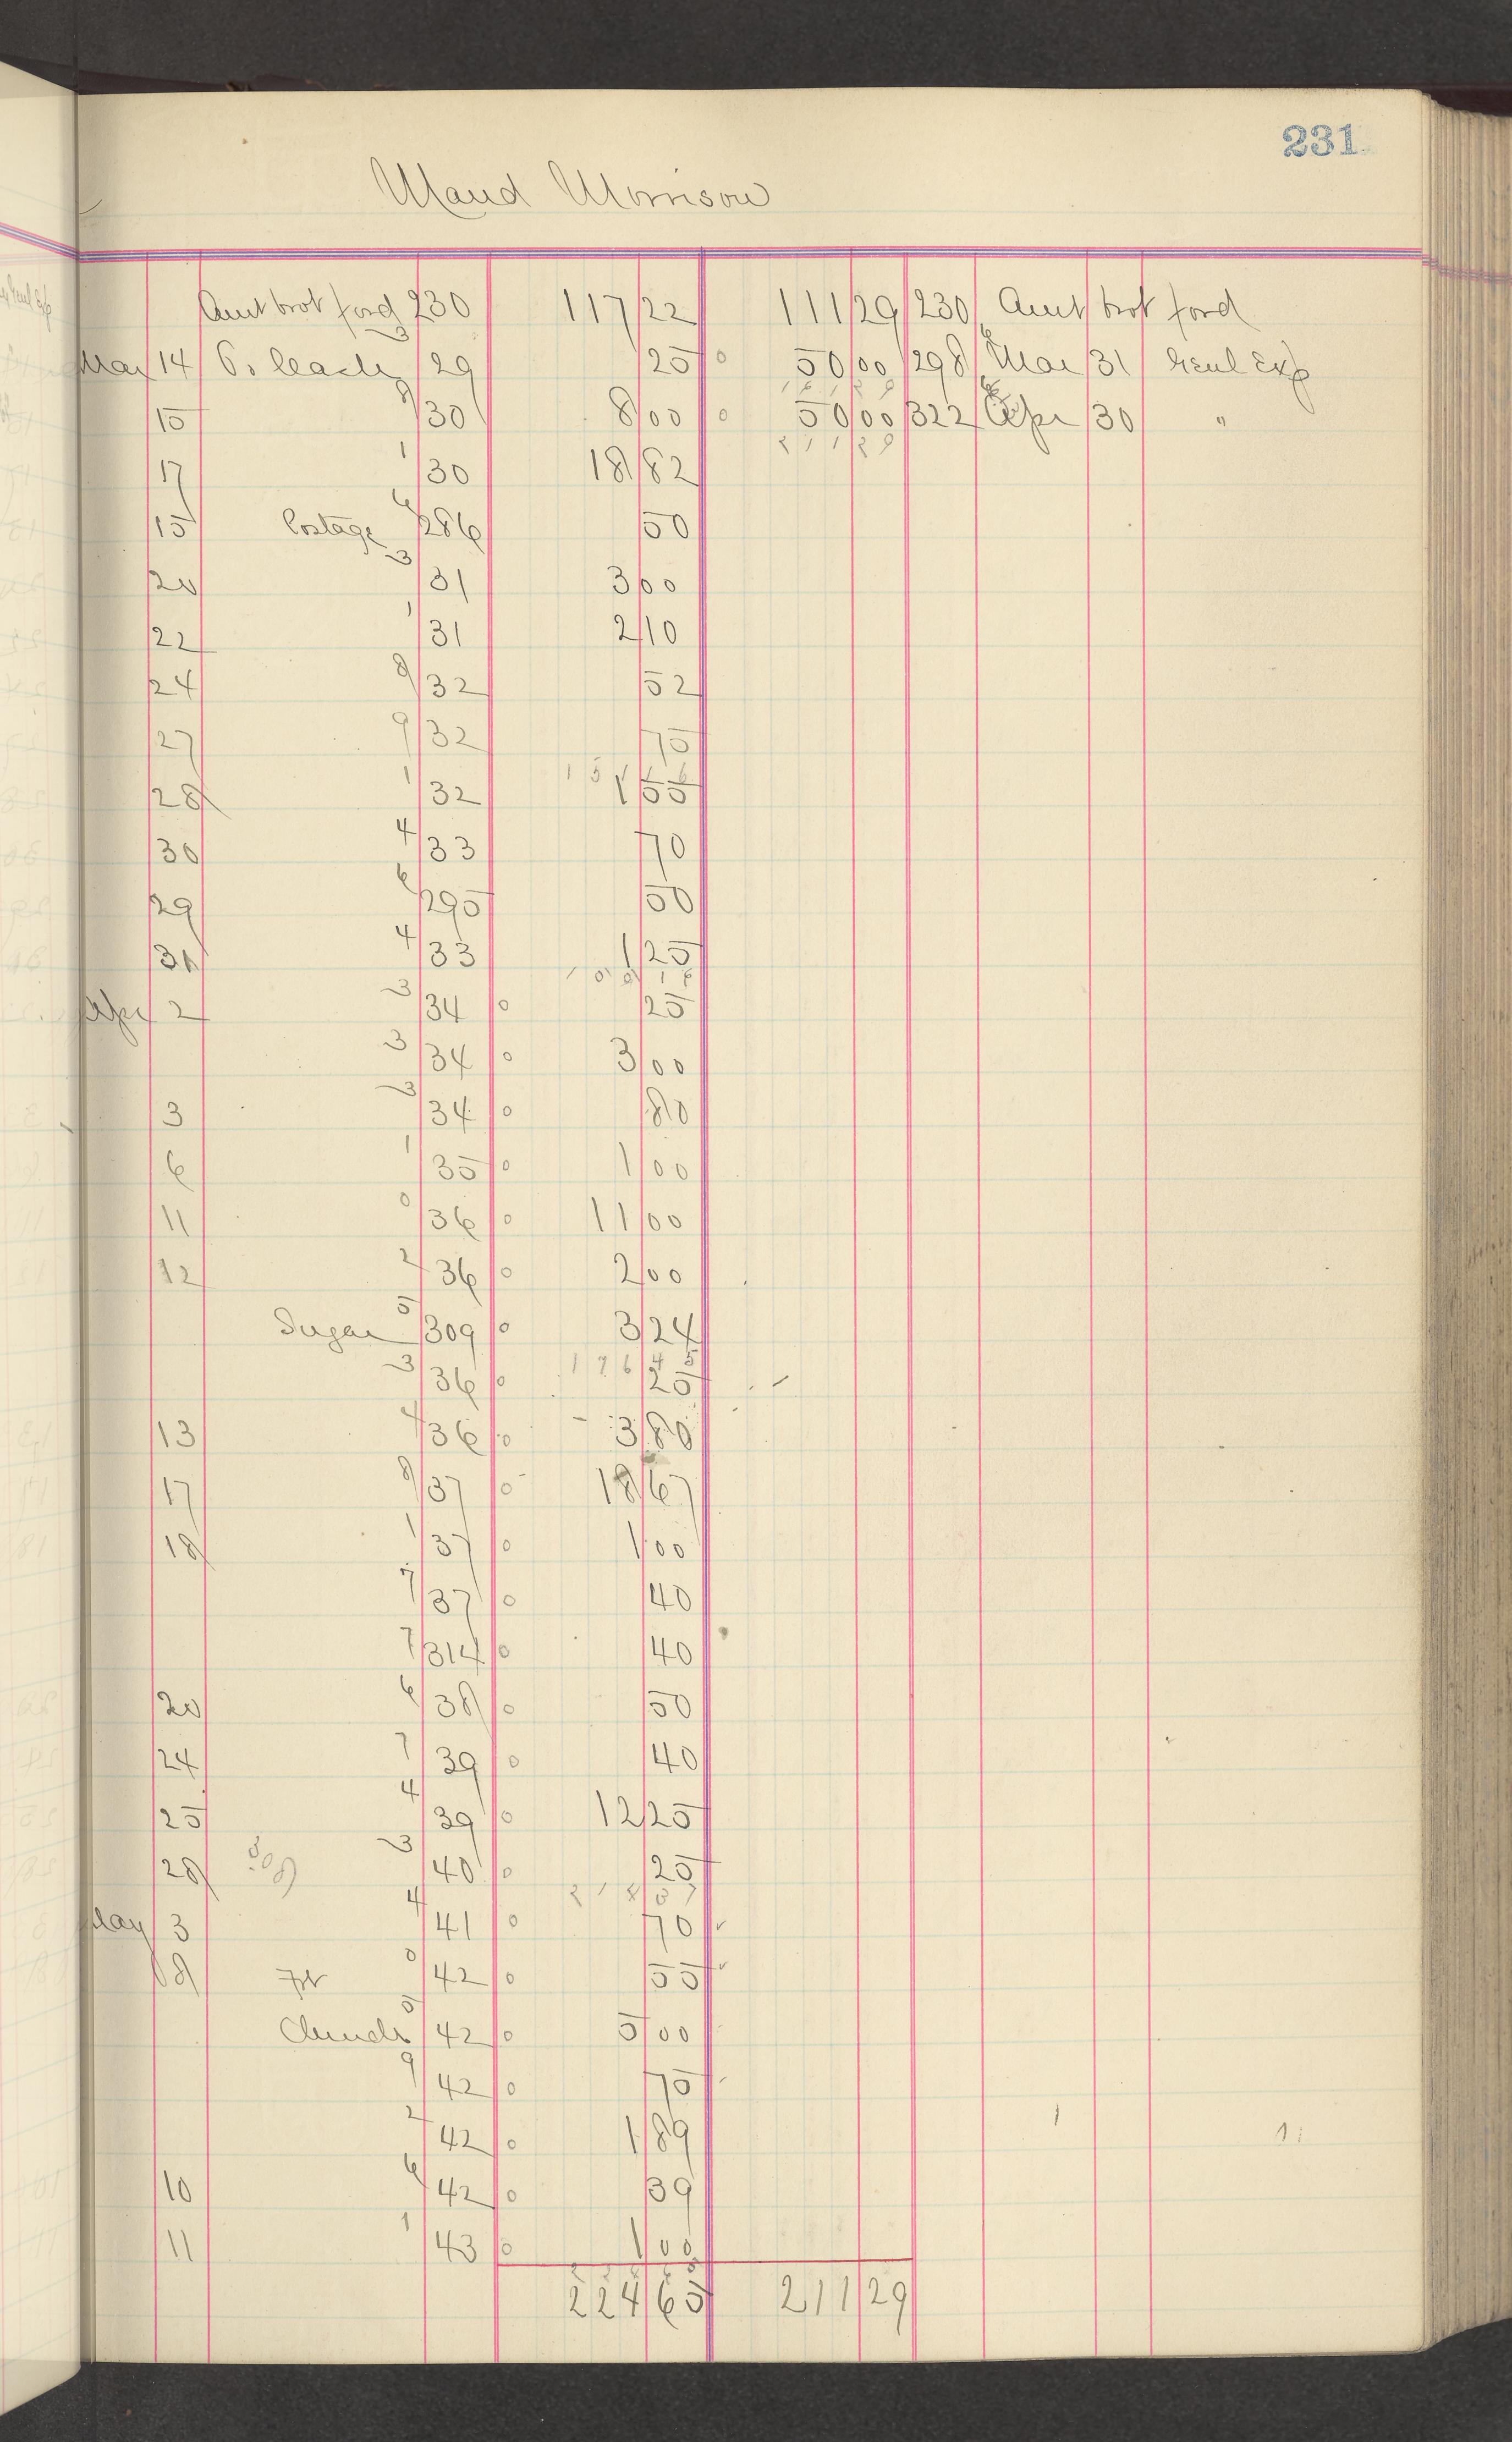 231
Maud Morrison
Amt brot ford 230 117 22 111 29 230 Amt brot ford
Mar 14 3/29 25 50 00 298 Mar 31 Genl Exp
15 8/30 8 00 50 00 322 Apr 30 "
17 1/30 18 82
15 Postage 6/286 50
20 3/31 3 00
22 1/31 2 10
24 8/32 52
27 9/32 75
28 1/32 1 55
30 4/33 70
29 6/295 50
31 4/33 1 25
Apr 2 3/34 25
3/34 3 00
3 3/34 80
6 1/35 1 00
11 0/36 11 00
12 2/36 2 00
Sugar 5/309 3 24
3/36 25
13 4/36 3 80
17 8/37 18 67
18 1/37 1 00
7/37 40
7/314 40
20 6/38 50
24 7/39 40
25 4/39 12 25
28 3/40 25
May 3 4/41 70
8 Frt 0/42 55
5/42 5 00
9/42 75
2/42 1 89
10 6/42 39
11 1/43 1 00
224 65 211 29